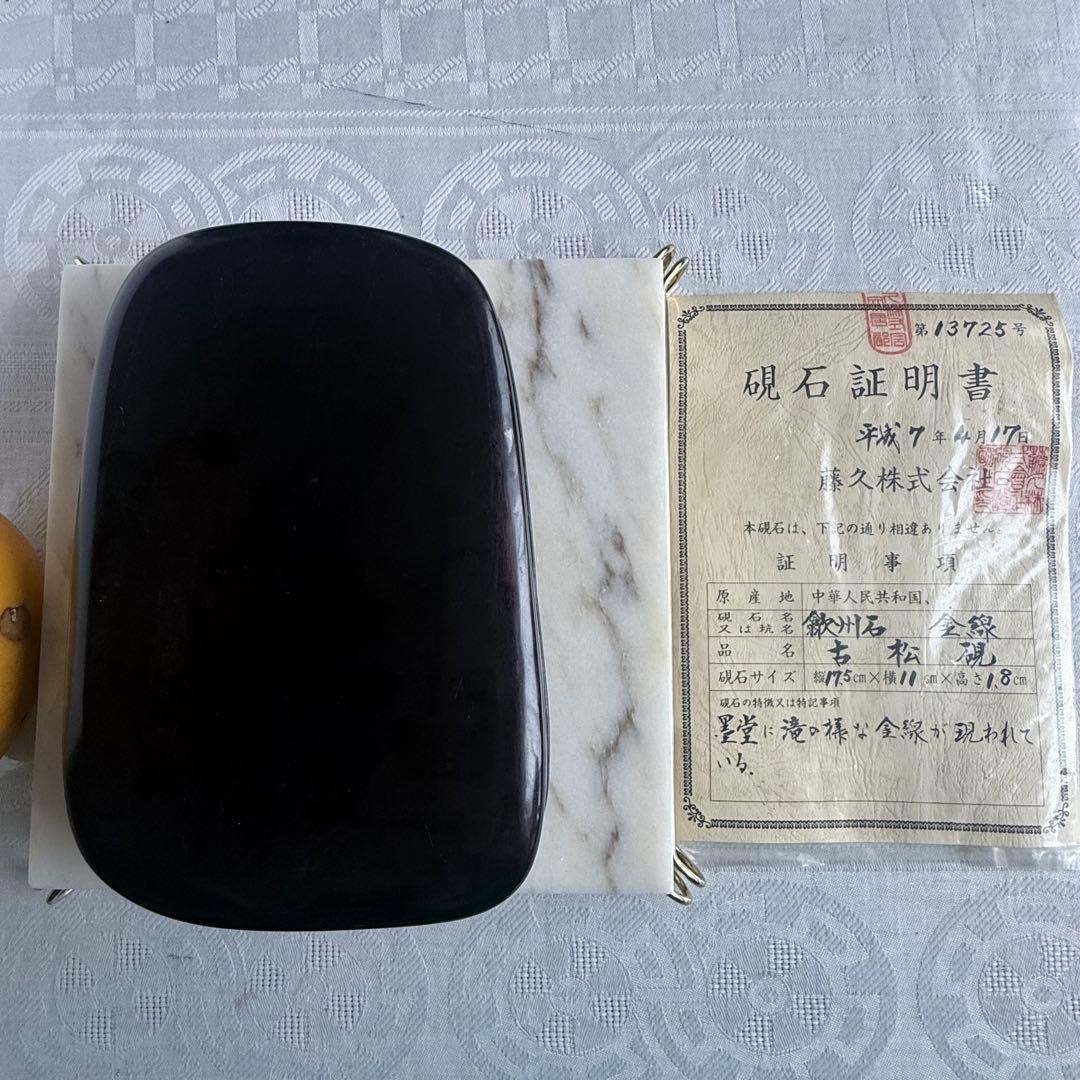 第13725号
硯石証明書
平成7年4月17日
藤久株式会社
本硯石は、下記の通り相違ありません。
証明事項
原産地 中華人民共和国、
硯石名又は坑名 歙州石 金線
品名 古松硯
硯石サイズ 縦17.5cm×横11cm×高さ1.8cm
硯石の特徴又は特記事項
墨堂に滝の様な金線が現われて
いる.